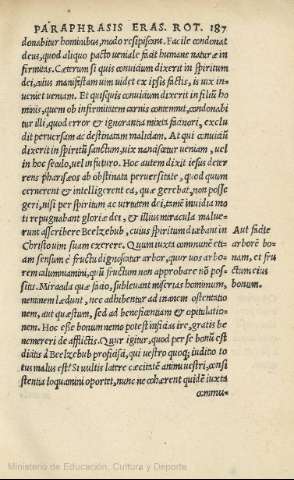 PARAPHRASIS ERAS. ROT. 187
donabitur hominibus, modo resipiscant. Facile condonat
deus, quod aliquo pacto ueniale facit humanæ naturæ in
firmitas. Cæterum si quis conuicium dixerit in spiritum
dei, cuius manifestam uim uidet ex ipsis factis, is uix in-
ueniet ueniam. Et quisquis conuicium dixerit in filiũ ho
minis, quem ob infirmitatem carnis contemnit, condonabi
tur illi, quod error & ignorantia mixta facinori, exclu
dit peruersam ac destinatam malitiam. At qui conuiciũ
dixerit in spiritũ sanctum, uix nanciscetur ueniam, uel
in hoc seculo, uel in futuro. Hoc autem dixit iesus deter
rens phariseos ab obstinata peruersitate, quod quum
cernerent & intelligerent ea, quæ gerebat, non posse
geri, nisi per spiritum ac uirtutem dei, tamẽ inuidia mo
ti repugnabant gloriæ dei, & illius miracula malue-
runt asscribere Beelzebub, cuius spiritum dicebant in
Christo uim suam exerere. Quum iuxta communẽ eti-
am sensum è fructu dignoscatur arbor, quur uos arbo-
rem calumniamini, quũ fructum non approbare nõ pos-
sitis. Miranda quæ facio, subleuant miserias hominum,
neminem lædunt, nec adhibentur ad inanem ostentatio
nem, aut quæstum, sed ad beneficentiam & opitulatio-
nem. Hoc esse bonum nemo potest inficias ire, gratis be
nemereri de afflictis. Quur igitur, quod per se bonũ est
dicitis à Beelzebub proficisci, qui uestro quoq; iudicio to
tus malus est? Si uultis latere cæcitatẽ animi uestri, consi
stentia loquamini oportet, nunc ne cohærent quidẽ iuxta
commu-
Aut facite
arborẽ bo-
nam, et fru
ctum eius
bonum.
Ministerio de Educación, Cultura y Deporte